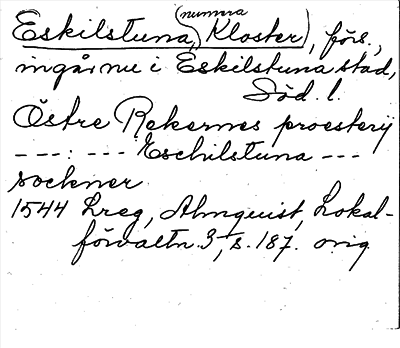 (numera
Eskilstuna, Kloster), förs.,
ingår nu i Eskilstuna stad,
Söd. l.
Östre Rekernes proesterij
---:--- Eschilstuna ---
sockner
1544 Lreg, Almquist, Lokal-
förvaltn. 3, s. 187. orig